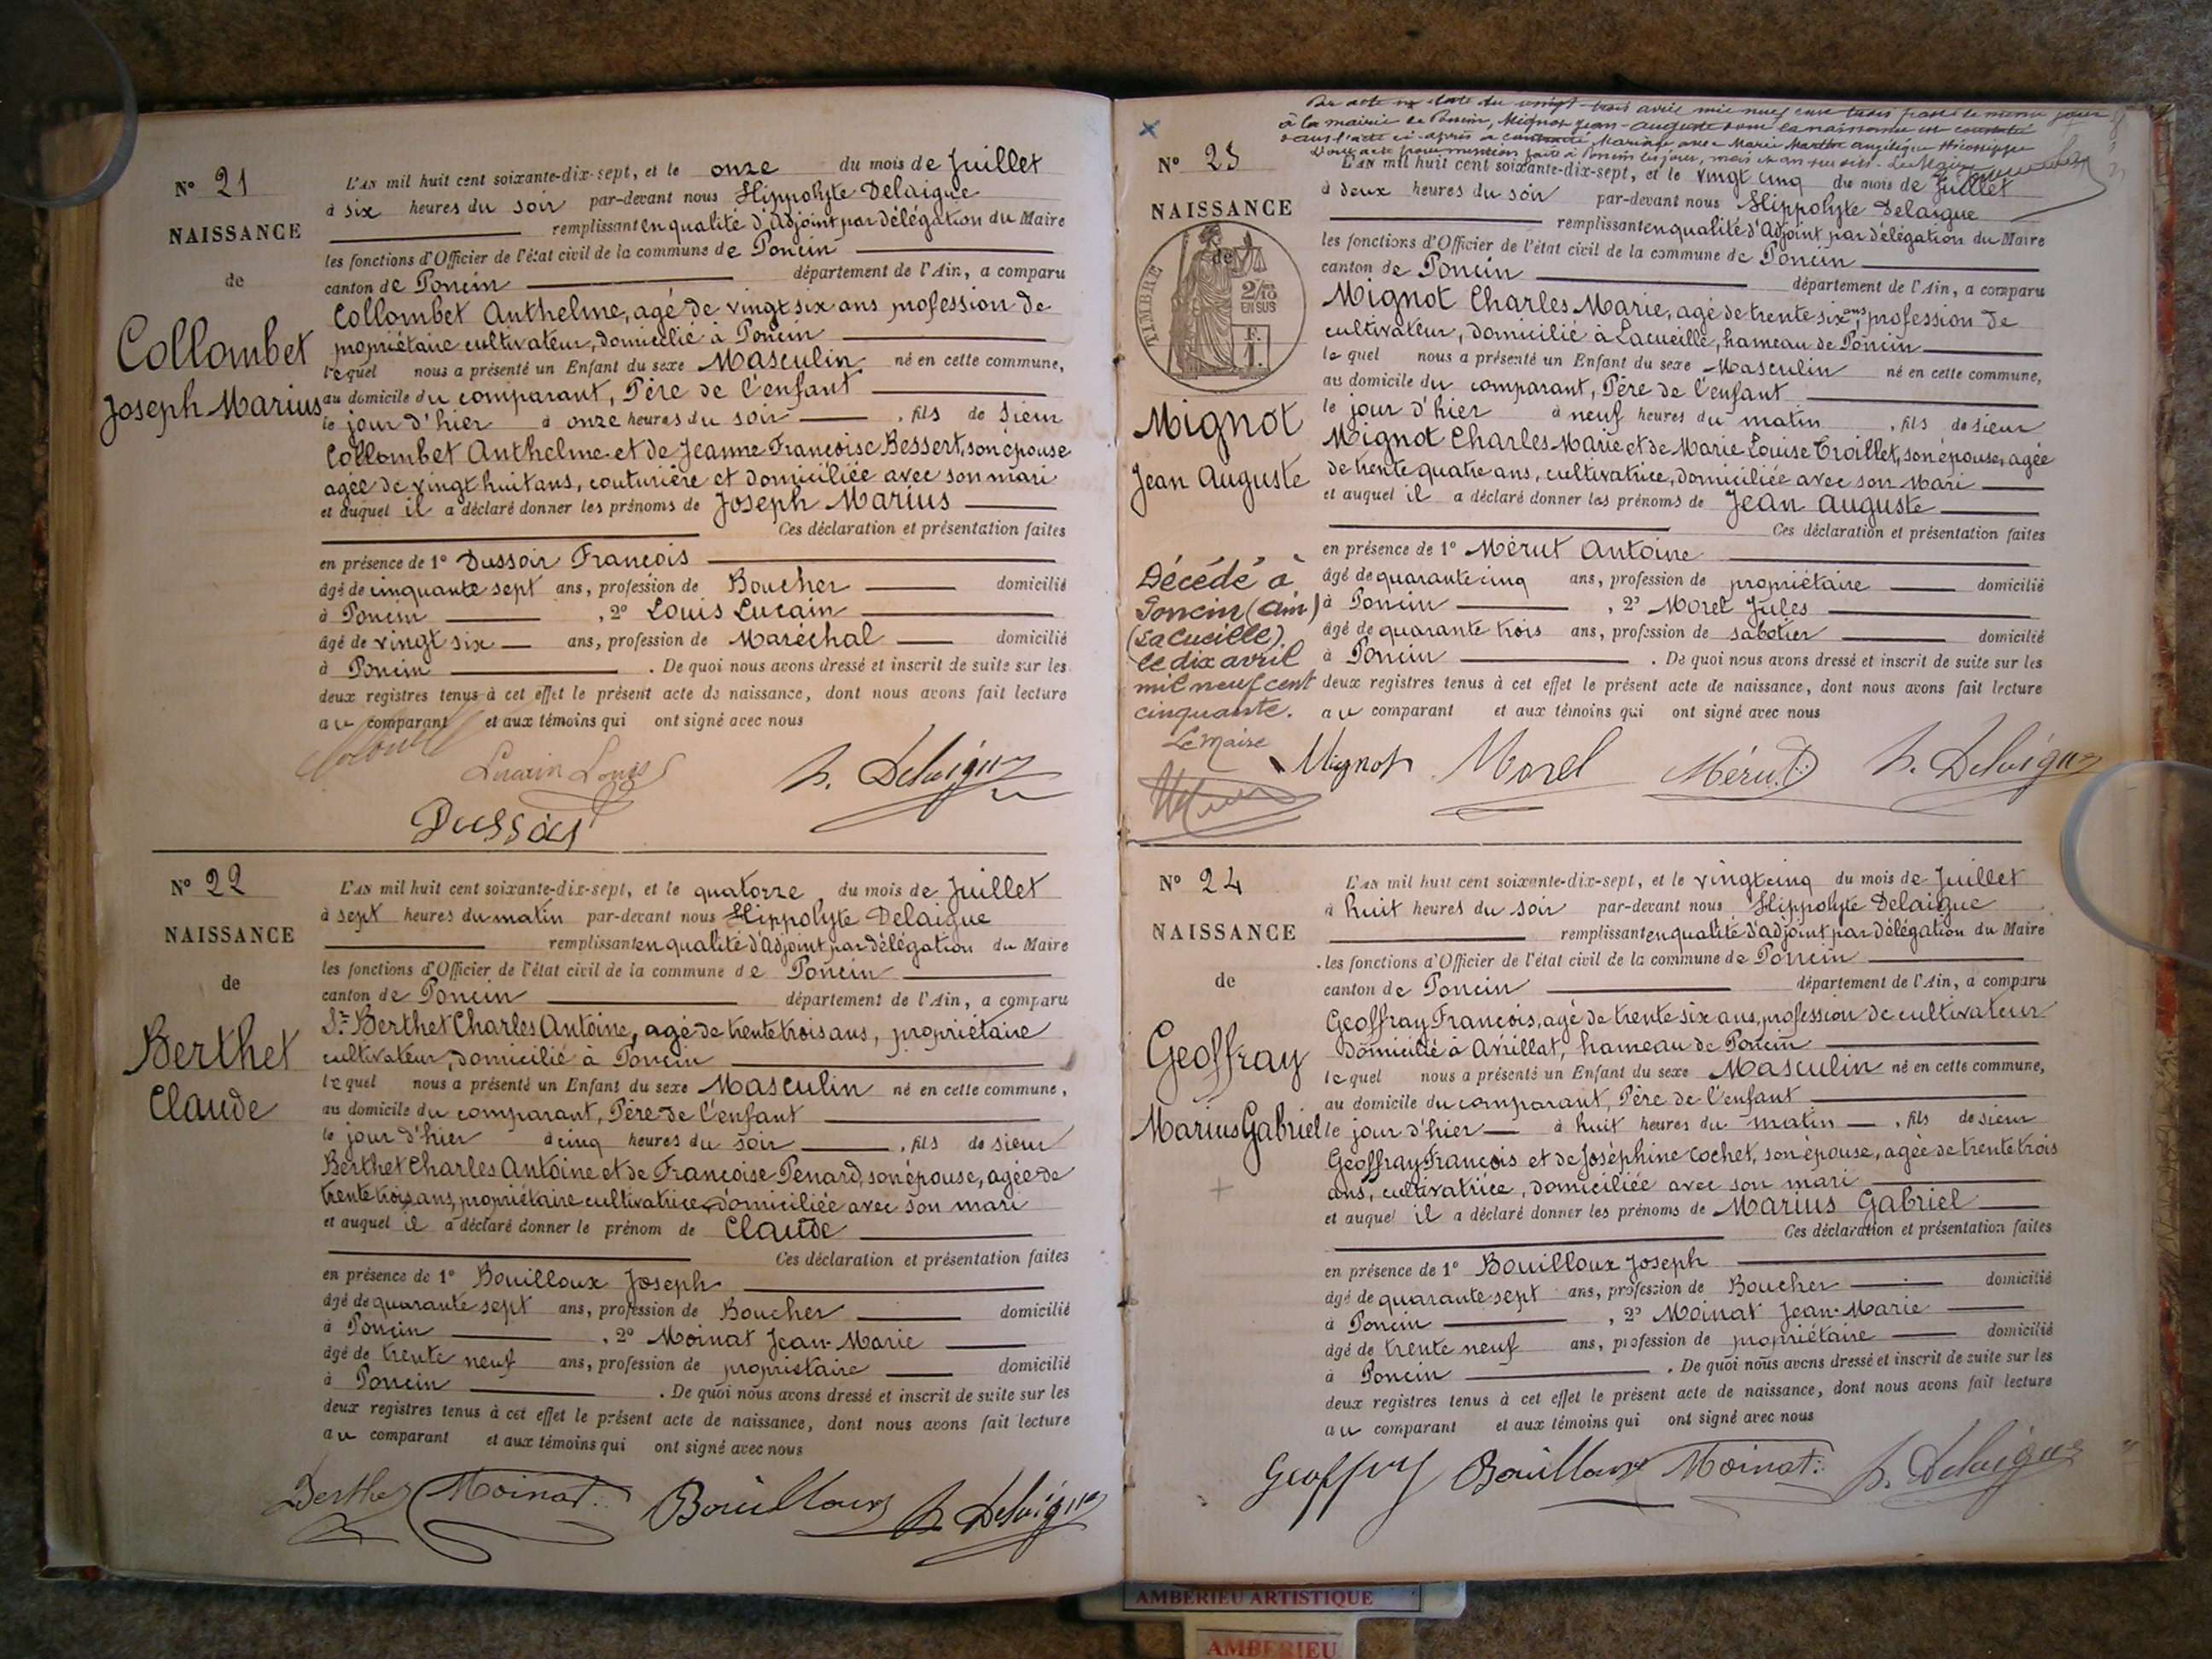 Nº 21
NAISSANCE
de
Collombet
Joseph Marius
L'AN mil huit cent soixante-dix-sept, et le onze du mois de Juillet
à six heures du soir par-devant nous Hippolyte Delaigue
remplissant en qualité d'Adjoint par Délégation du Maire
les fonctions d'Officier de l'état civil de la commune de Poncin
canton de Poncin département de l'Ain, a comparu
Collombet Anthelme, agé de vingt six ans profession de
propriétaire cultivateur, domicilié à Poncin
lequel nous a présenté un Enfant du sexe Masculin né en cette commune,
au domicile du comparant, Père de l'enfant
le jour d'hier à onze heures du soir , fils de Sieur
Collombet Anthelme et de Jeanne Françoise Bessert, son épouse
agée de vingt huit ans, couturière et domiciliée avec son mari
et auquel il a déclaré donner les prénoms de Joseph Marius
Ces déclaration et présentation faites
en présence de 1º Dussoir François
âgé de cinquante sept ans, profession de Boucher domicilié
à Poncin , 2º Louis Lucain
âgé de vingt six ans, profession de Maréchal domicilié
à Poncin . De quoi nous avons dressé et inscrit de suite sur les
deux registres tenus à cet effet le présent acte de naissance, dont nous avons fait lecture
au comparant et aux témoins qui ont signé avec nous
Lucain Louis
h. Delaigue
Nº 22
NAISSANCE
de
Berthet
Claude
L'AN mil huit cent soixante-dix-sept, et le quatorze du mois de Juillet
à sept heures du matin par-devant nous Hippolyte Delaigue
remplissant en qualité d'adjoint par délégation du Maire
les fonctions d'Officier de l'état civil de la commune de Poncin
canton de Poncin département de l'Ain, a comparu
Sr Berthet Charles Antoine, agé de trente trois ans, propriétaire
cultivateur, domicilié à Poncin
lequel nous a présenté un Enfant du sexe Masculin né en cette commune,
au domicile du comparant, Père de l'enfant
le jour d'hier à cinq heures du soir , fils de sieur
Berthet Charles Antoine et de Françoise Penard, son épouse, agée de
trente trois ans, propriétaire cultivatrice, domiciliée avec son mari
et auquel il a déclaré donner le prénom de Claude
Ces déclaration et présentation faites
en présence de 1º Bouilloux Joseph
âgé de quarante sept ans, profession de Boucher domicilié
à Poncin , 2º Moinat Jean-Marie
âgé de trente neuf ans, profession de propriétaire domicilié
à Poncin . De quoi nous avons dressé et inscrit de suite sur les
deux registres tenus à cet effet le présent acte de naissance, dont nous avons fait lecture
au comparant et aux témoins qui ont signé avec nous
Berthet Moinat Bouilloux h. Delaigue
Par acte en date du vingt-trois avril mil neuf cent trois passé le même jour
à la mairie de Poncin, Mignot Jean-Auguste dont la naissance est constatée
dans l'acte ci-après a contracté Mariage avec Marie Marthe Angélique
Dont acte pour mention faite à Poncin les jour, mois et an susdits. Le Maire
Nº 23
NAISSANCE
de
TIMBRE
2/10
EN SUS
F.
1.
Mignot
Jean Auguste
Décédé à
Poncin (Ain)
(La Cueille)
le dix avril
mil neuf cent
cinquante.
Le Maire
L'AN mil huit cent soixante-dix-sept, et le vingt cinq du mois de Juillet
à deux heures du soir par-devant nous Hippolyte Delaigue
remplissant en qualité d'Adjoint par délégation du Maire
les fonctions d'Officier de l'état civil de la commune de Poncin
canton de Poncin département de l'Ain, a comparu
Mignot Charles Marie, agé de trente six ans, profession de
cultivateur, domicilié à Lacueille, hameau de Poncin
lequel nous a présenté un Enfant du sexe Masculin né en cette commune,
au domicile du comparant, Père de l'enfant
le jour d'hier à neuf heures du matin , fils de sieur
Mignot Charles Marie et de Marie Louise Troillet, son épouse, agée
de trente quatre ans, cultivatrice, domiciliée avec son Mari
et auquel il a déclaré donner les prénoms de Jean Auguste
Ces déclaration et présentation faites
en présence de 1º Mérut Antoine
âgé de quarante cinq ans, profession de propriétaire domicilié
à Poncin , 2º Morel Jules
âgé de quarante trois ans, profession de sabotier domicilié
à Poncin . De quoi nous avons dressé et inscrit de suite sur les
deux registres tenus à cet effet le présent acte de naissance, dont nous avons fait lecture
au comparant et aux témoins qui ont signé avec nous
Mignot Morel Mérut h. Delaigue
Nº 24
NAISSANCE
de
Geoffray
Marius Gabriel
L'AN mil huit cent soixante-dix-sept, et le vingt cinq du mois de Juillet
à huit heures du soir par-devant nous Hippolyte Delaigue
remplissant en qualité d'adjoint par délégation du Maire
les fonctions d'Officier de l'état civil de la commune de Poncin
canton de Poncin département de l'Ain, a comparu
Geoffray François, agé de trente six ans, profession de cultivateur
domicilié à Avrillat, hameau de Poncin
lequel nous a présenté un Enfant du sexe Masculin né en cette commune,
au domicile du comparant, Père de l'enfant
le jour d'hier à huit heures du matin , fils de sieur
Geoffray François et de Joséphine Cochet, son épouse, agée de trente trois
ans, cultivatrice, domiciliée avec son mari
et auquel il a déclaré donner les prénoms de Marius Gabriel
Ces déclaration et présentation faites
en présence de 1º Bouilloux Joseph
âgé de quarante sept ans, profession de Boucher domicilié
à Poncin , 2º Moinat Jean-Marie
âgé de trente neuf ans, profession de propriétaire domicilié
à Poncin . De quoi nous avons dressé et inscrit de suite sur les
deux registres tenus à cet effet le présent acte de naissance, dont nous avons fait lecture
au comparant et aux témoins qui ont signé avec nous
Geoffray Bouilloux Moinat h. Delaigue
AMBERIEU ARTISTIQUE
AMBERIEU